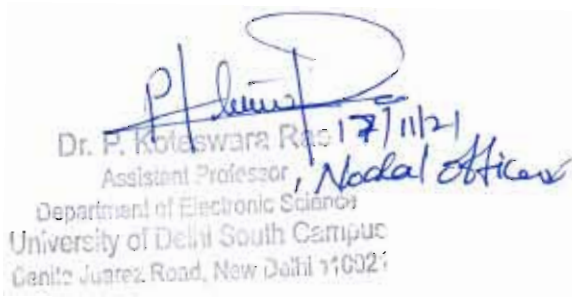 Dr. P. Koteswara Rao 17/11/21
Assistant Professor, Nodal Officer
Department of Electronic Science
University of Delhi South Campus
Benito Juarez Road, New Delhi 110021